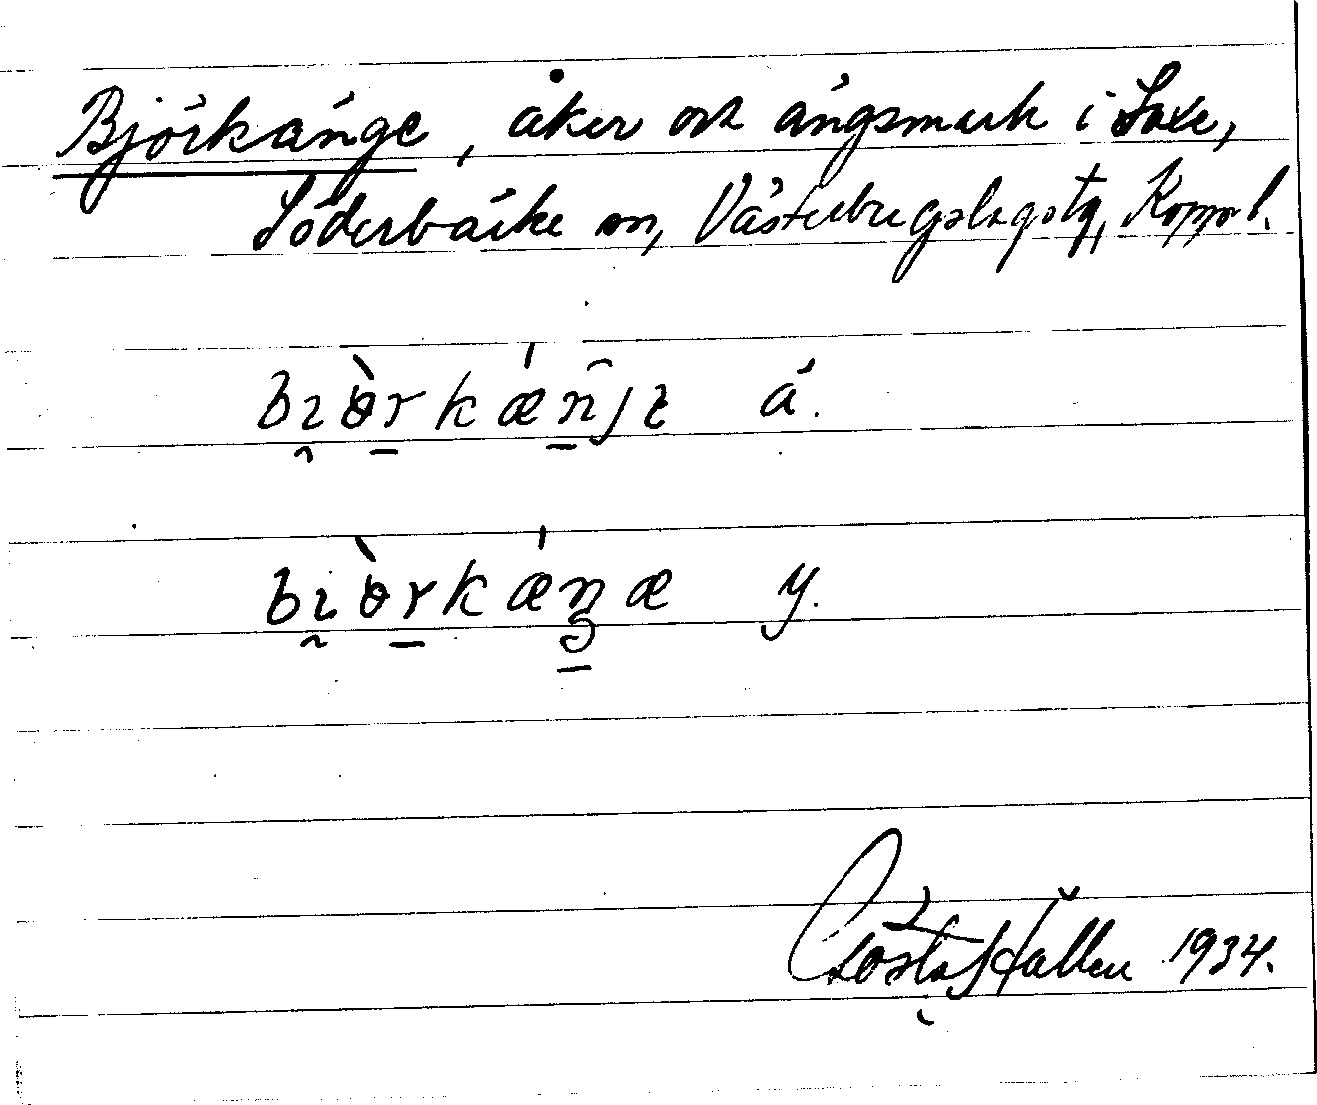 Björkänge, åker och ängsmark i Saxe,
Söderbärke sn, Västerbergslags tg, Kopp. l.
bɩ̯ὸ̱rkǽṉ̂ȷɛ ä.
bɩ̯ὸ̱rkǽŋ̱æ y.
Gösta Hallen 1934.